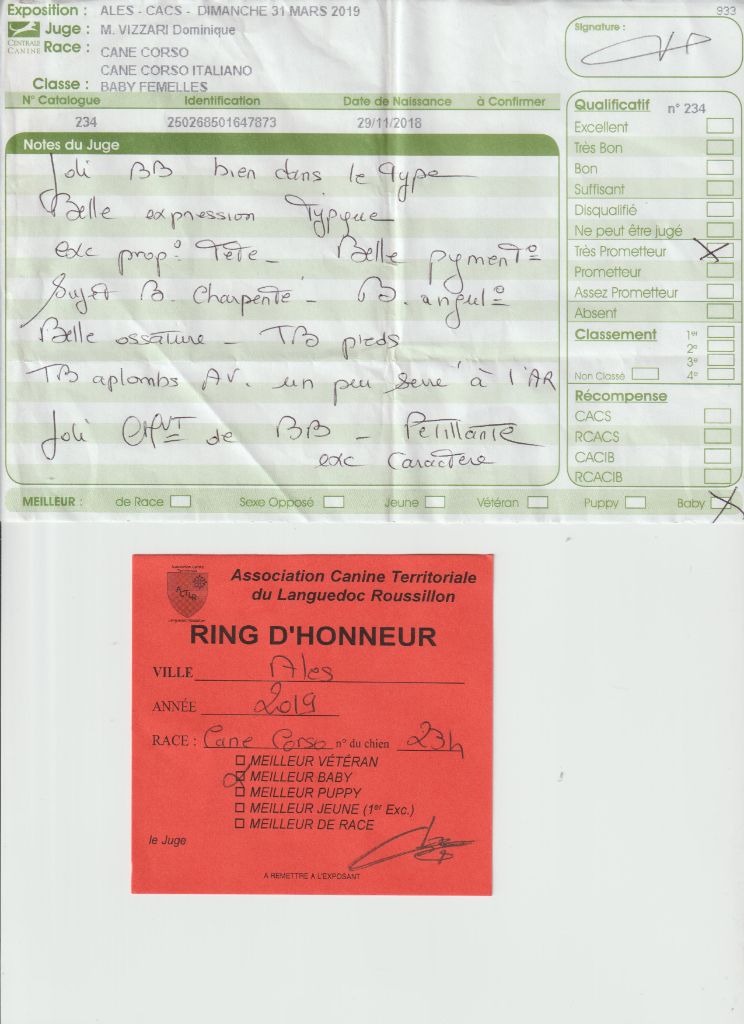 Exposition : ALES - CACS - DIMANCHE 31 MARS 2019
933
Juge : M. VIZZARI Dominique
CENTRALE CANINE
Race : CANE CORSO
CANE CORSO ITALIANO
Classe : BABY FEMELLES
Signature :
N° Catalogue Identification Date de Naissance à Confirmer
234 250268501647873 29/11/2018
Notes du Juge
Joli BB bien dans le Type
Belle expression Typique
exc prop° Tête - Belle pygment°
Sujet B. Charpenté - B. angul°
Belle ossature - TB pieds
TB aplombs AV. un peu serré à l'AR
Joli CHVT de BB - Pétillante
exc Caractère
Qualificatif n° 234
Excellent
Très Bon
Bon
Suffisant
Disqualifié
Ne peut être jugé
Très Prometteur
Prometteur
Assez Prometteur
Absent
Classement 1er
2e
3e
Non Classé 4e
Récompense
CACS
RCACS
CACIB
RCACIB
MEILLEUR : de Race Sexe Opposé Jeune Vétéran Puppy Baby
Association Canine Territoriale
du Languedoc Roussillon
RING D'HONNEUR
VILLE Ales
ANNÉE 2019
RACE : Cane Corso n° du chien 234
MEILLEUR VÉTÉRAN
MEILLEUR BABY
MEILLEUR PUPPY
MEILLEUR JEUNE (1er Exc.)
MEILLEUR DE RACE
le Juge
A REMETTRE A L'EXPOSANT